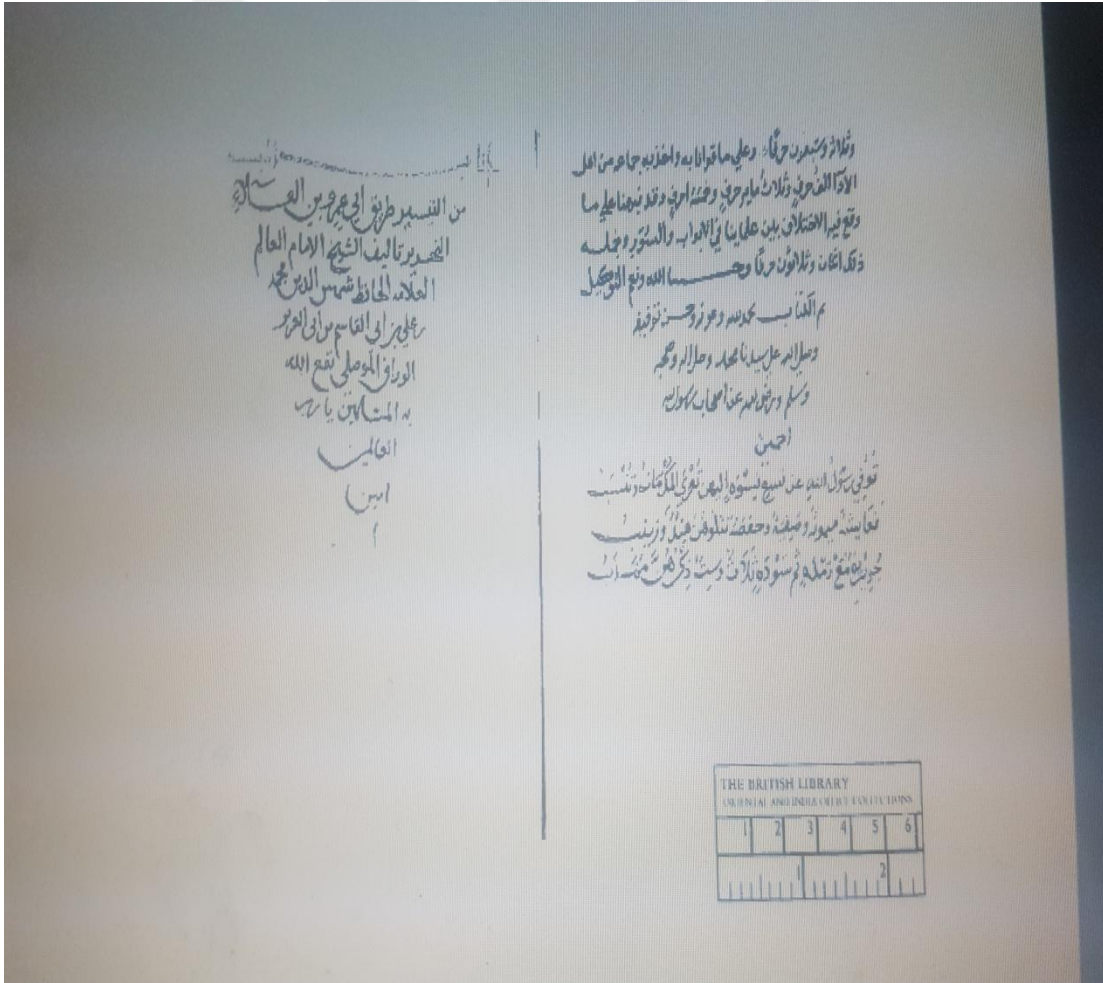 وثلاثة وسبعون حرفا وعلى ما قرأنا به واخذ به جماعة من اهل
الادآ الف حرف وثلاث مايه حرف وخمسة احرف وقد نبهنا على ما
وقع فيه الاختلاف بين علماينا في الابواب والسور وجمله
ذلك اثنان وثلاثون حرفا وحسبنا الله ونعم الوكيل
تم الكتاب بحمد الله وعونه وحسن توفيقه
وصلى الله على سيدنا محمد وعلى اله وصحبه
وسلم ورضي الله عن اصحاب رسول الله
اجمعين
توفي رسول الله عن تسع نسوة إليهن تعزى المكرمات وتنسب
فعايشة ميمونة وصفية وحفصة تتلوهن هند وزينب
جويرية مع رملة ثم سودة ثلاث وست ذكرهن مهذب
كتاب
من التيسير طريق ابي عمرو بن العلاء
التحرير تاليف الشيخ الامام العالم
العلامه الحافظ شمس الدين محمد
بن علي بن ابي القاسم بن ابي العز بن
الوراق الموصلي نفع الله
به المسلمين يا رب
العالمين
امين
THE BRITISH LIBRARY
ORIENTAL AND INDIA OFFICE COLLECTIONS
1 2 3 4 5 6
1 2